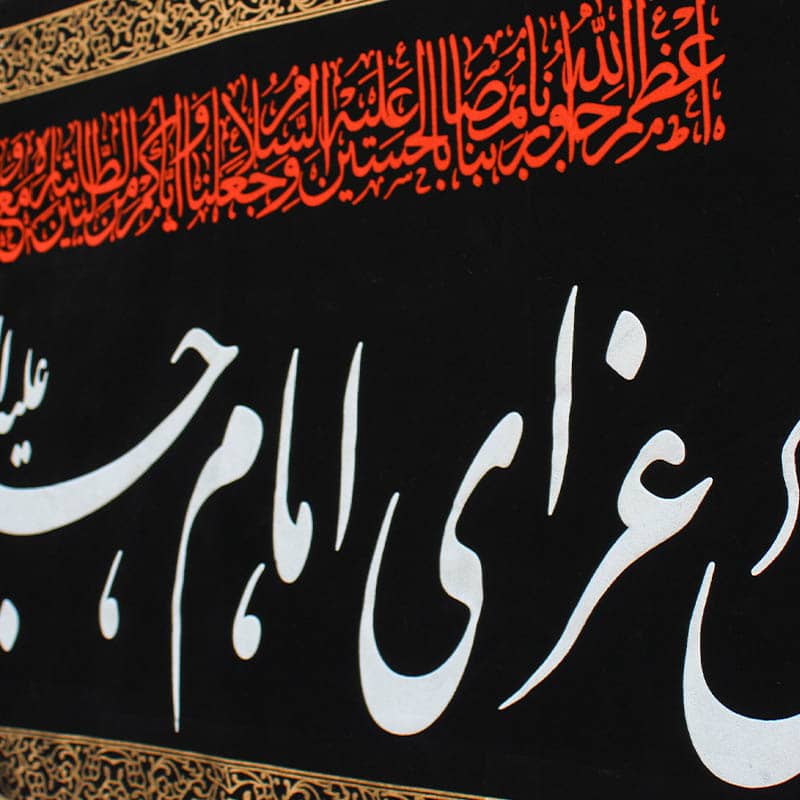 أعظم الله أجورنا بمصابنا بالحسين عليه السلام وجعلنا وإياكم من الطالبين بثاره مع
عزای امام علیه